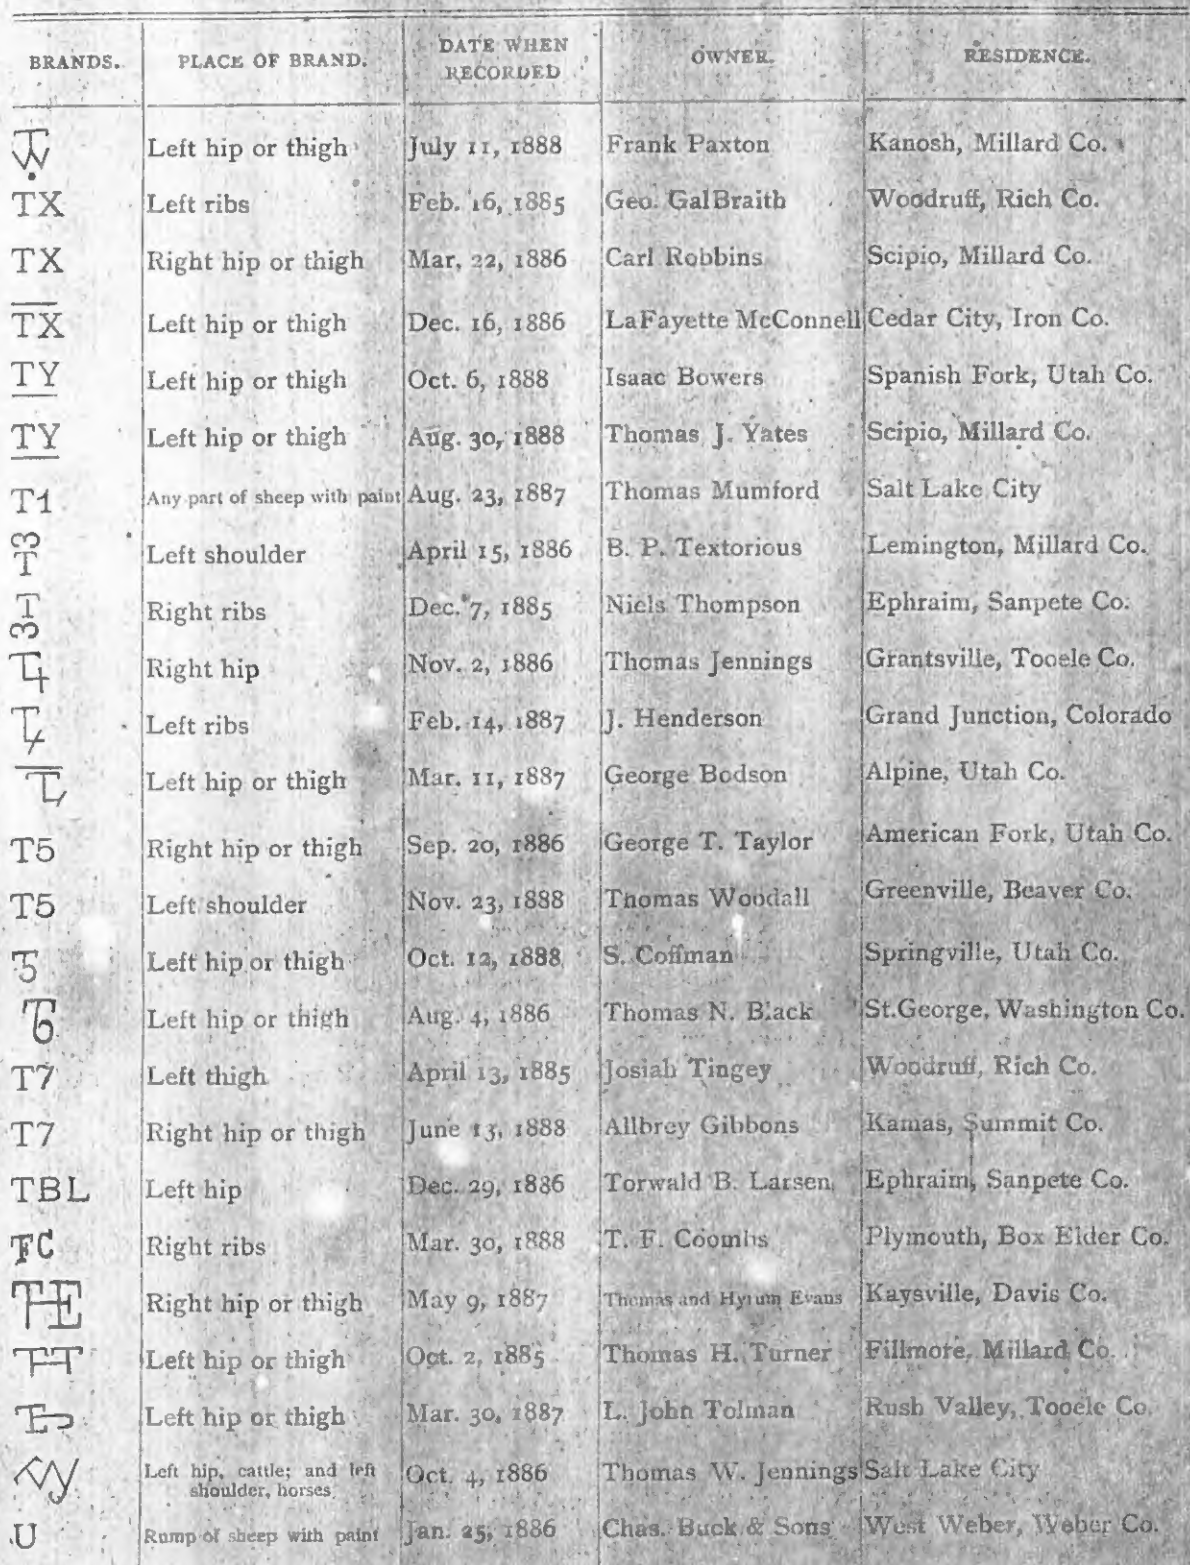 BRANDS. PLACE OF BRAND. DATE WHEN RECORDED OWNER. RESIDENCE.
TW Left hip or thigh July 11, 1888 Frank Paxton Kanosh, Millard Co.
TX Left ribs Feb. 16, 1885 Geo. GalBraith Woodruff, Rich Co.
TX Right hip or thigh Mar. 22, 1886 Carl Robbins Scipio, Millard Co.
TX Left hip or thigh Dec. 16, 1886 LaFayette McConnell Cedar City, Iron Co.
TY Left hip or thigh Oct. 6, 1888 Isaac Bowers Spanish Fork, Utah Co.
TY Left hip or thigh Aug. 30, 1888 Thomas J. Yates Scipio, Millard Co.
T1 Any part of sheep with paint Aug. 23, 1887 Thomas Mumford Salt Lake City
3T Left shoulder April 15, 1886 B. P. Textorious Lemington, Millard Co.
T3 Right ribs Dec. 7, 1885 Niels Thompson Ephraim, Sanpete Co.
T4 Right hip Nov. 2, 1886 Thomas Jennings Grantsville, Tooele Co.
T4 Left ribs Feb. 14, 1887 J. Henderson Grand Junction, Colorado
Left hip or thigh Mar. 11, 1887 George Bodson Alpine, Utah Co.
T5 Right hip or thigh Sep. 20, 1886 George T. Taylor American Fork, Utah Co.
T5 Left shoulder Nov. 23, 1888 Thomas Woodall Greenville, Beaver Co.
T5 Left hip or thigh Oct. 12, 1888 S. Coffman Springville, Utah Co.
T6 Left hip or thigh Aug. 4, 1886 Thomas N. Black St.George, Washington Co.
T7 Left thigh April 13, 1885 Josiah Tingey Woodruff, Rich Co.
T7 Right hip or thigh June 13, 1888 Allbrey Gibbons Kamas, Summit Co.
TBL Left hip Dec. 29, 1886 Torwald B. Larsen Ephraim, Sanpete Co.
TFC Right ribs Mar. 30, 1888 T. F. Coombs Plymouth, Box Elder Co.
THE Right hip or thigh May 9, 1887 Thomas and Hyrum Evans Kaysville, Davis Co.
THT Left hip or thigh Oct. 2, 1885 Thomas H. Turner Fillmore, Millard Co.
Left hip or thigh Mar. 30, 1887 L. John Tolman Rush Valley, Tooele Co.
Left hip, cattle; and left shoulder, horses Oct. 4, 1886 Thomas W. Jennings Salt Lake City
U Rump of sheep with paint Jan. 25, 1886 Chas. Buck & Sons West Weber, Weber Co.